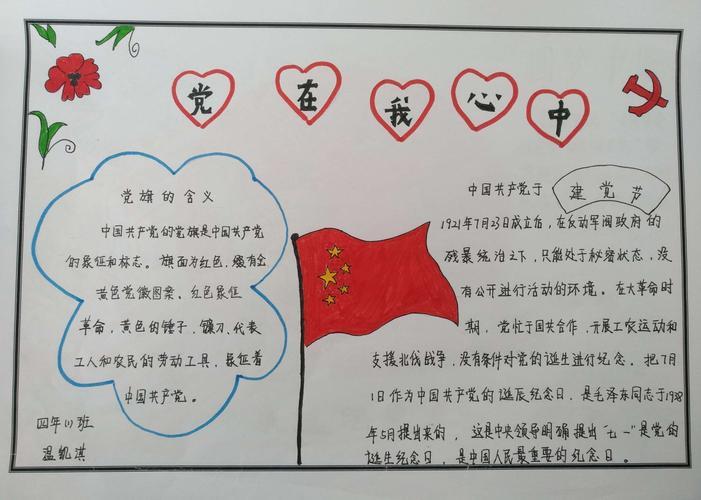 党在我心中
党旗的含义
中国共产党的党旗是中国共产党
的象征和标志。旗面为红色,缀有金
黄色党徽图案。红色象征
革命,黄色的锤子、镰刀、代表
工人和农民的劳动工具,象征着
中国共产党。
四年(1)班
温凯淇
建党节
中国共产党于
1921年7月23日成立后,在反动军阀政府的
残暴统治之下,只能处于秘密状态,没
有公开进行活动的环境。在大革命时
期,党忙于国共合作,开展工农运动和
支援北伐战争,没有条件对党的诞生进行纪念。把7月
1日作为中国共产党的诞辰纪念日,是毛泽东同志于1938
年5月提出来的,这是中央领导明确提出“七一”是党的
诞生纪念日,是中国人民最重要的纪念日。